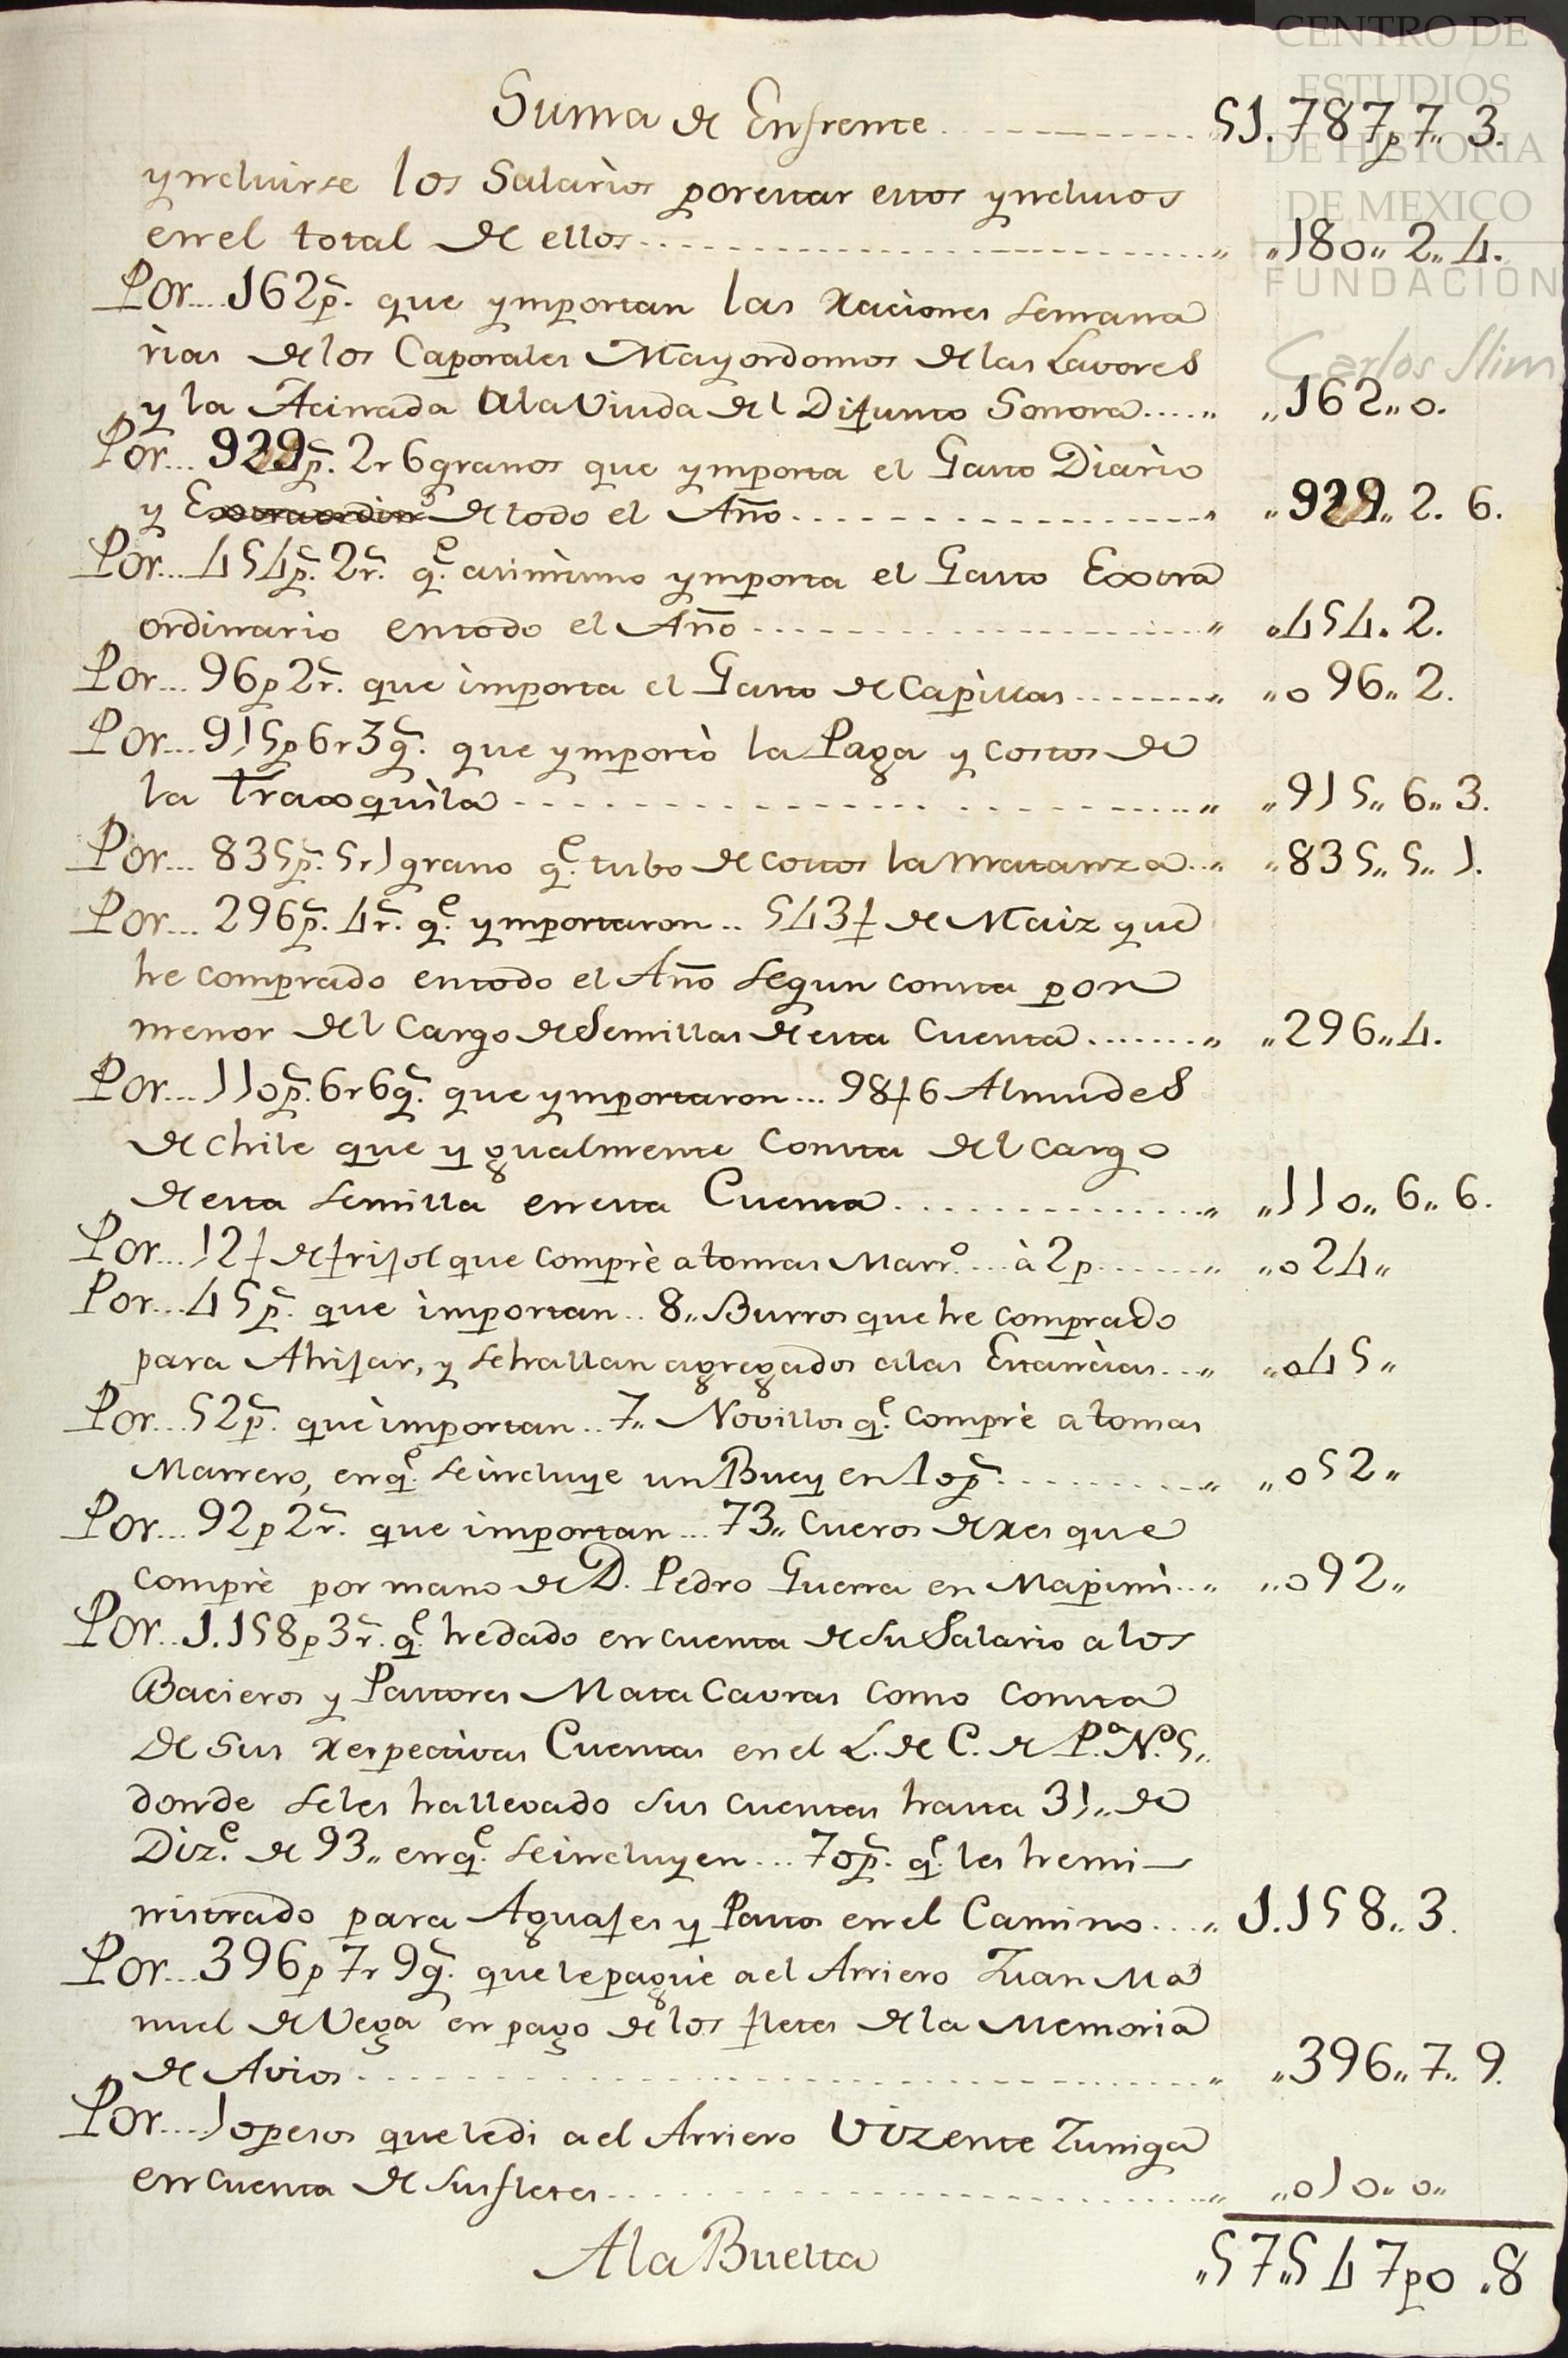 CENTRO DE
ESTUDIOS
DE HISTORIA
DE MEXICO
FUNDACIÓN
Carlos Slim
Suma de Enfrente ............ 51.787p 7,, 3.
yncluirse los Salarios porestar estos yncluios
en el total de ellos ............ ,, ,,180,, 2,, 4.
Por... 162p.s que ymportan las Raciones semana
rias de los Caporales Mayordomos de las Lavores
y la Acinada ala Viuda del Difunto Sonora ..... ,, ,,162,, 0.
Por... 929p.s 2r 6granos que ymporta el Gasto Diario
y Extraordin.o de todo el Año ............ ,, ,,929,, 2. 6.
Por... 454p.s 2r.s q.e asimismo ymporta el Gasto Extra
ordinario entodo el Año ............ ,, ,,454. 2.
Por... 96p 2r.s que importa el Gasto de Capillas ....... ,, ,,0 96,, 2.
Por... 915p 6r 3g.s que ymportò la Paga y costos de
la Traxquila ............ ,, ,,915,, 6,, 3.
Por... 835p.s 5r 1grano q.e tubo de costos la matanza .. ,, ,,835,, 5,, 1.
Por... 296p.s 4r.s q.e ymportaron .. 543f de Maiz que
he comprado entodo el Año segun consta por
menor del Cargo de Semillas de esta Cuenta ....... ,, ,,296,, 4.
Por... 110p.s 6r 6g.s que ymportaron ... 98f 6 Almudes
de chile que ygualmente consta del cargo
de esta semilla en esta Cuenta ............ ,, ,,110,, 6,, 6.
Por... 12f de frijol que comprè a tomas Marr.o ... à 2p ...... ,, ,,0 24,,
Por... 45p.s que importan .. 8,, Burros que he comprado
para Ahijar, y se hallan agregados alas Estancias ... ,, ,,045,,
Por... 52p.s que importan .. 7,, Novillos q.e comprè a tomas
Marrero, en q.e se incluye un Buey en 10p.s ........ ,, ,,052,,
Por... 92p 2r.s que importan ... 73,, cueros de Res que
comprè por mano de D. Pedro Guerra en Mapimi ... ,, ,,092,,
Por.. 1.158p 3r.s q.e he dado en cuenta de su Salario a los
Bacieros y Pastores Mata Cabras como consta
de sus Respectivas Cuentas en el L. de C. de P.a N.o 5,,
donde seles ha llevado sus cuentas hasta 31,, de
Diz.e de 93,, en q.e se incluyen ... 70p.s q.e les he mi-
nistrado para Aguajes y Pastos en el Camino .... ,, 1.158,, 3.
Por... 396p 7r 9g.s que le paguè ael Arriero Juan Ma
nuel de Vega en pago de los fletes de la Memoria
de Avios ............ ,, ,,396,, 7,, 9.
Por.... 10pesos que ledi ael Arriero Vizente Zuniga
en cuenta de sus fletes ............ ,, ,,010,, 0,,
A la Buelta ,,57,,547p0 ,,8